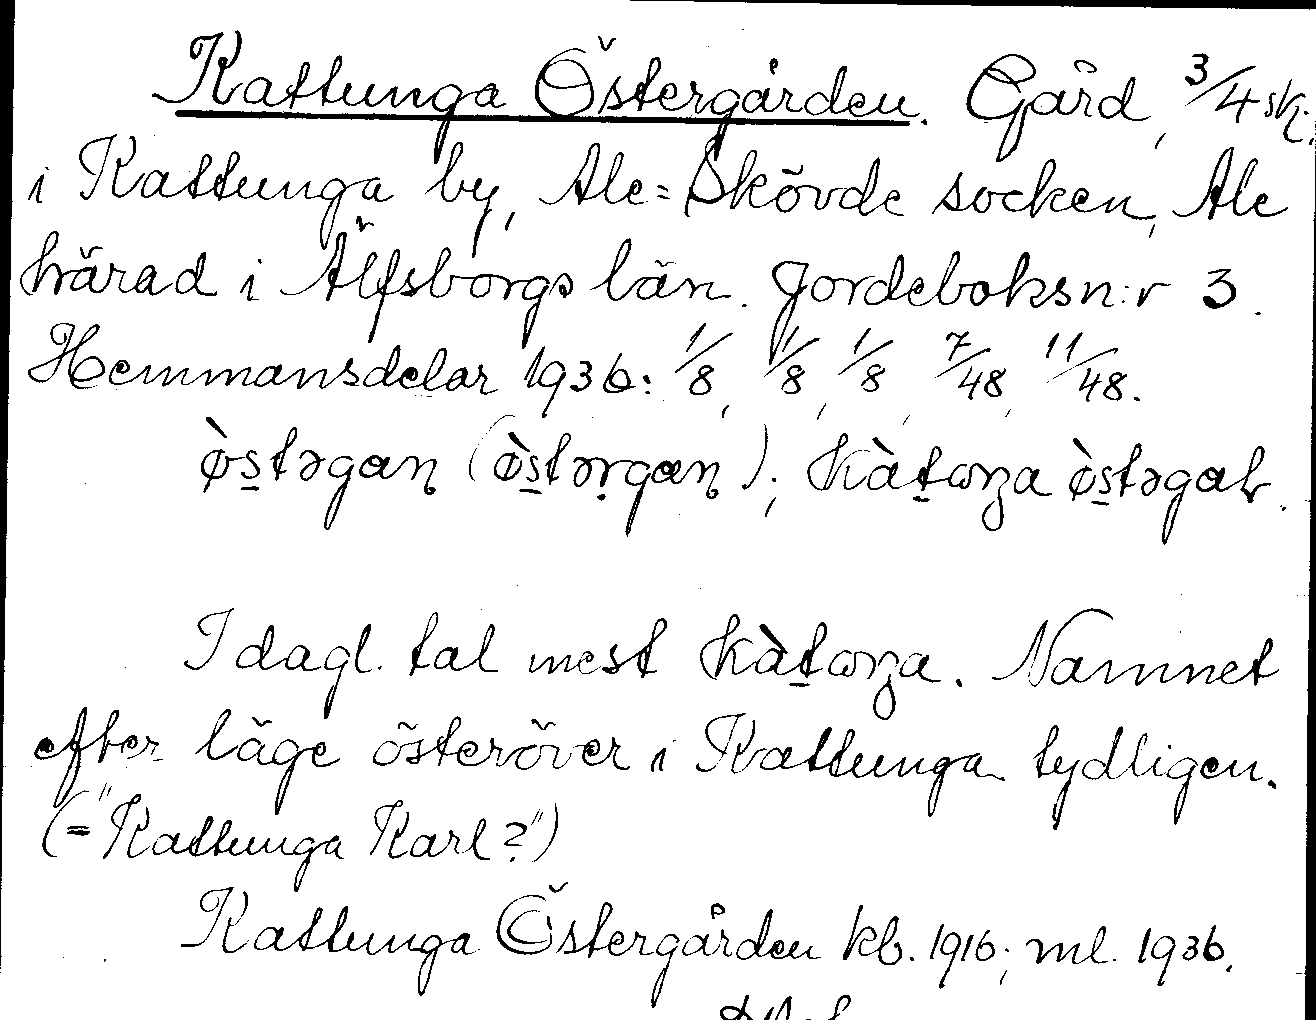 Kattunga Östergården. Gård, 3/4 sk.
i Kattunga by, Ale-Skövde socken, Ale
härad i Älfsborgs län. Jordeboksn:r 3.
Hemmansdelar 1936: 1/8, 1/8, 1/8, 7/48, 11/48.
I dagl. tal mest
Namnet
efter läge österöver i Kattunga tydligen.
(= "Kattunga Karl?")
Kattunga Östergården kb. 1916; ml. 1936.